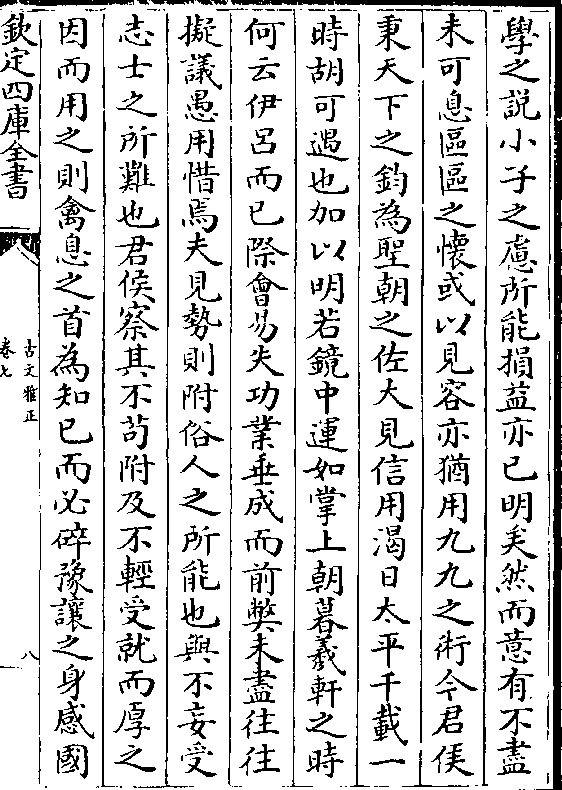 學之説小子之慮所能損益亦已明矣然而意有不盡
未可息區區之懷或以見容亦猶用九九之術今君侯
秉天下之鈞為聖朝之佐大見信用渴日太平千載一
時胡可遇也加以明若鏡中運如掌上朝暮羲軒之時
何云伊呂而已際會易失功業垂成而前弊未盡往往
擬議愚用惜焉夫見勢則附俗人之所能也與不妄受
志士之所難也君侯察其不苟附及不輕受就而厚之
因而用之則禽息之首為知已而必碎豫讓之身感國
欽定四庫全書
古文雅正
卷七
八